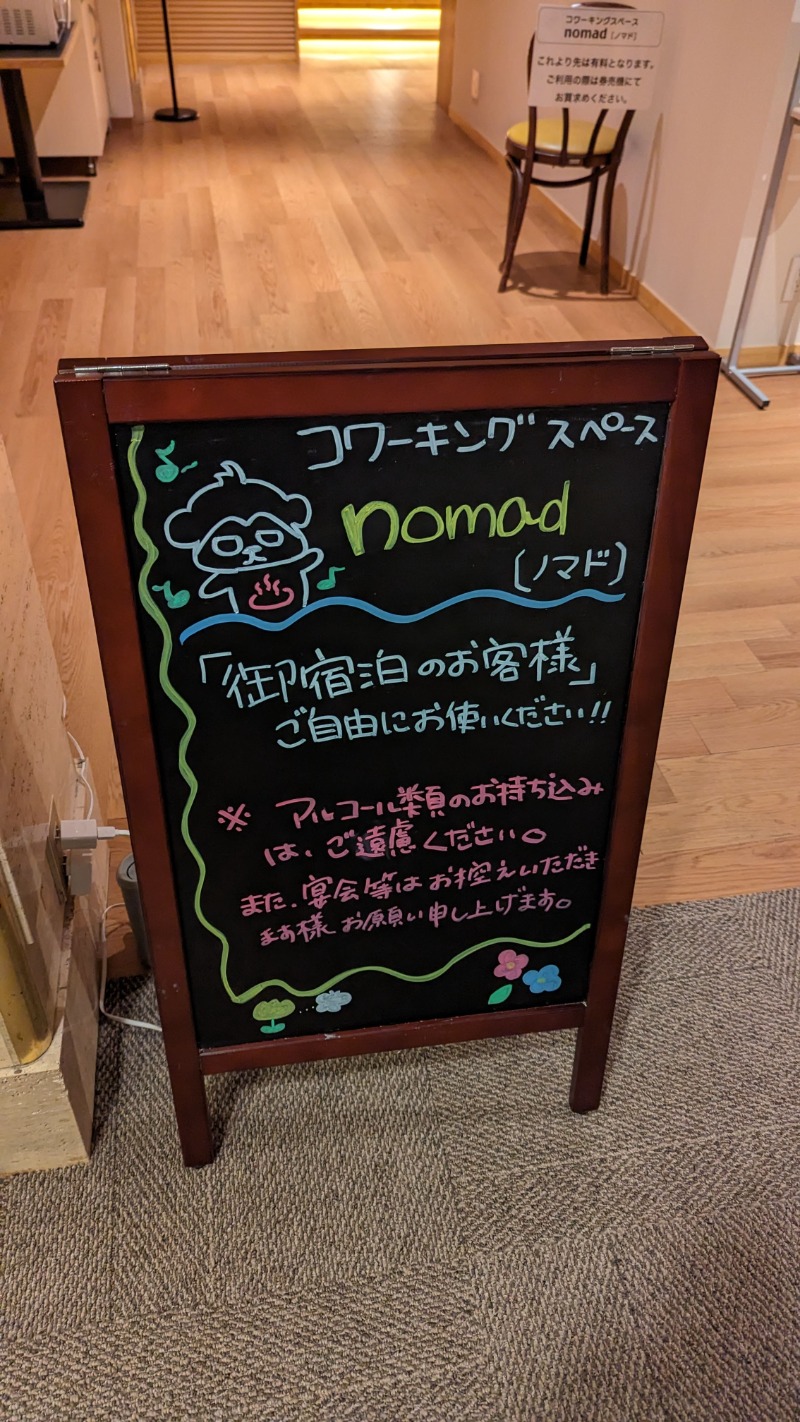 コワーキングスペース
nomad [ノマド]
これより先は有料となります。
ご利用の際は券売機にて
お買求めください。
コワーキングスペース
nomad
(ノマド)
「御宿泊のお客様」
ご自由にお使いください!!
※ アルコール類のお持ち込み
は、ご遠慮ください。
また、宴会等はお控えいただき
ます様、お願い申し上げます。